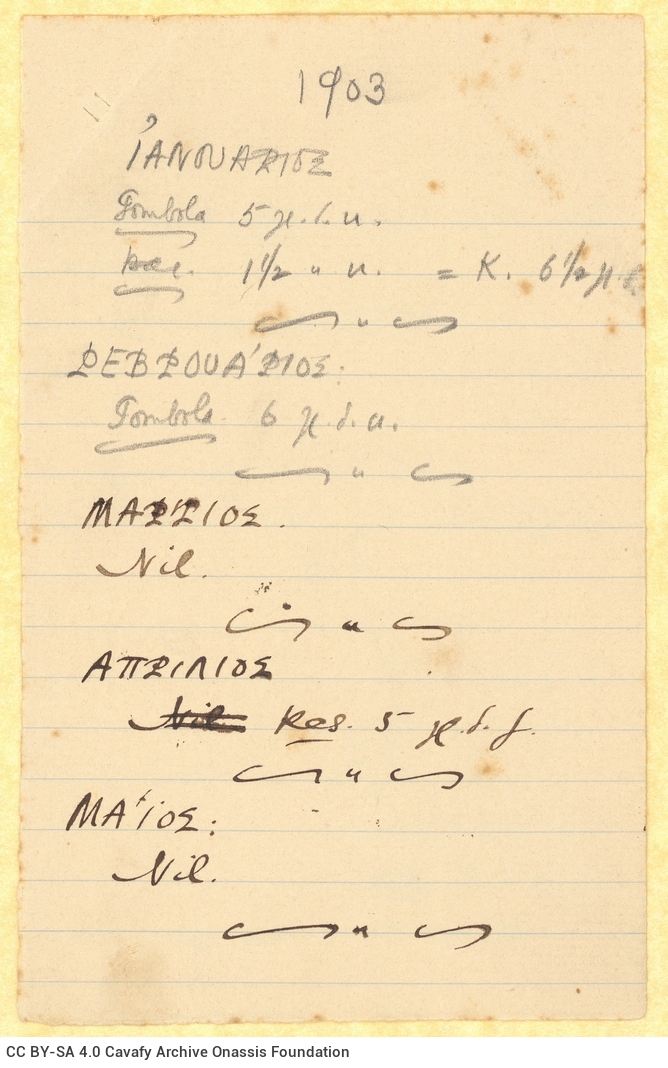 1903
ἸΑΝΟΥΑΡΙΟΣ
Tombola 5 μ.δ.κ.
Κες. 1 1/2 " κ. = Κ. 6 1/2 μ.
"
ΦΕΒΡΟΥΆΡΙΟΣ.
Tombola 6 μ.δ.κ.
"
ΜΑΡΤΙΟΣ.
Nil.
"
ΑΠΡΙΛΙΟΣ
Nil Κες. 5 μ.δ.
"
ΜΑΪΟΣ:
Nil.
"
CC BY-SA 4.0 Cavafy Archive Onassis Foundation